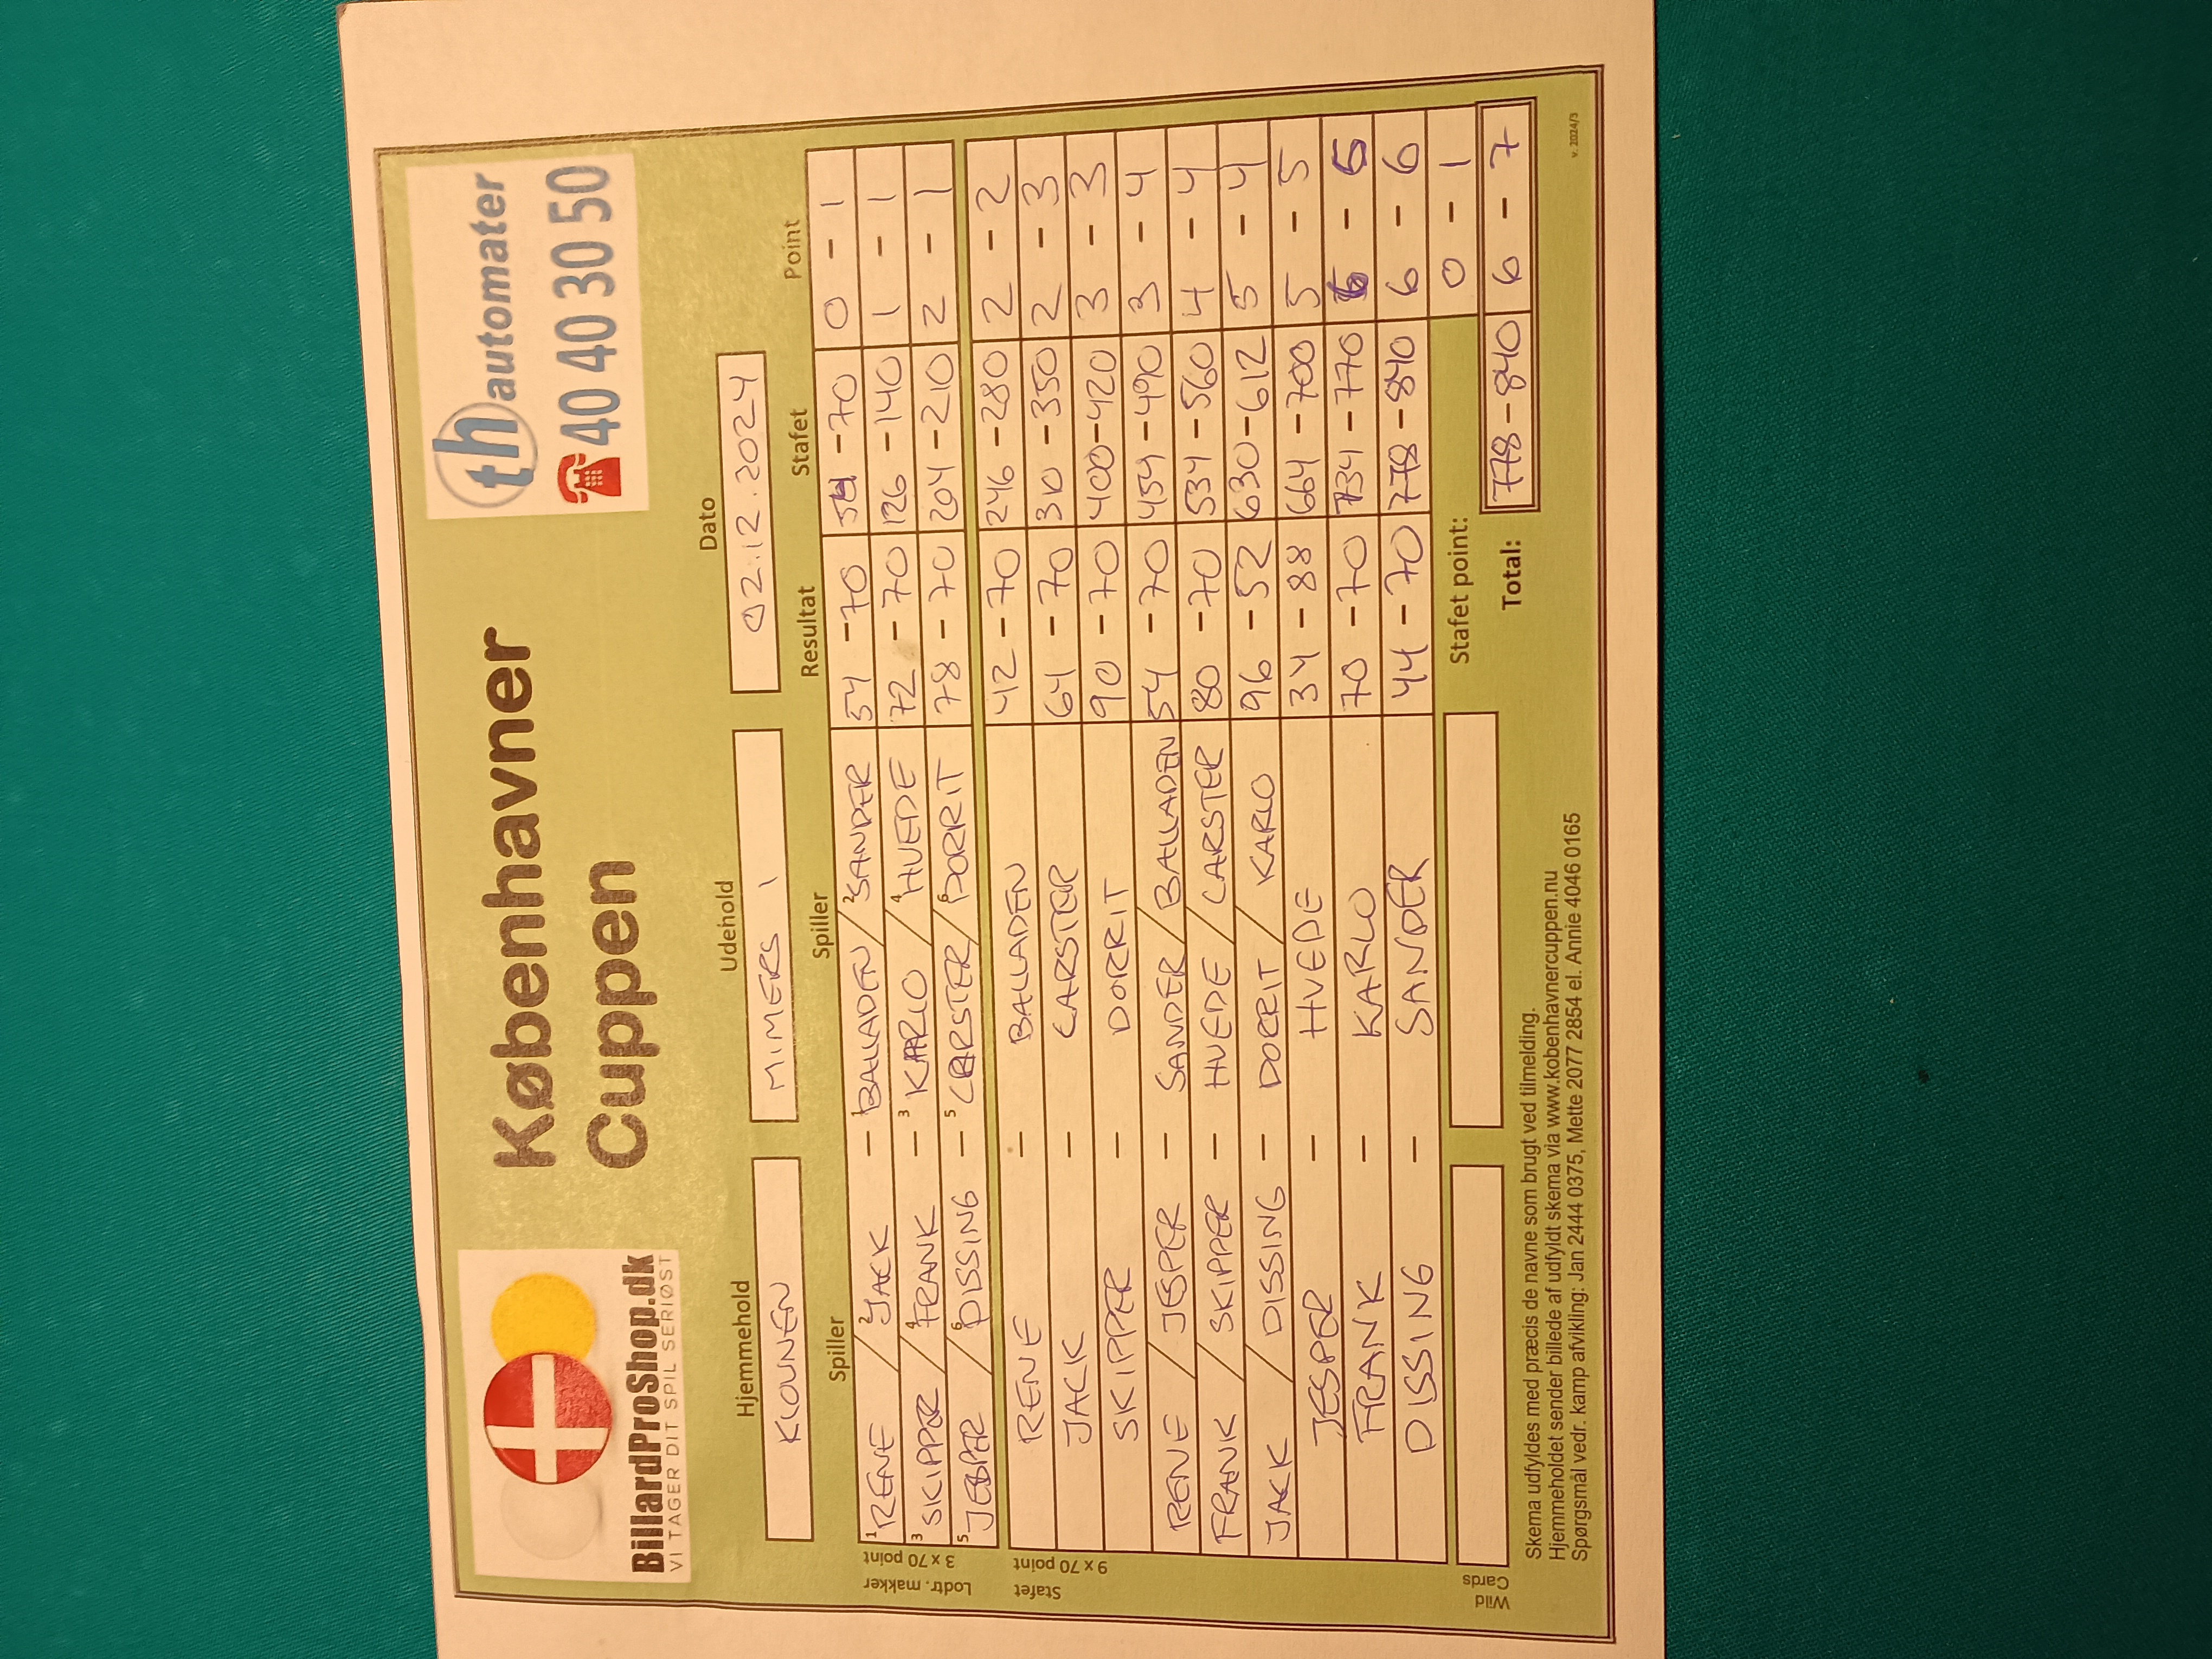 BillardProShop.dk
VI TAGER DIT SPIL SERIØST
Københavner
Cuppen
th automater
40 40 30 50
Hjemmehold Udehold Dato
KLOVNEN MIMERS 1 02.12.2024
Spiller Spiller Resultat Stafet Point
Lodtr. makker
3 x 70 point
1 RENE / 2 JACK - 1 BALLADEN / 2 SANDER 54 - 70 54 - 70 0 - 1
3 SKIPPER / 4 FRANK - 3 KARLO / 4 HVEDE 72 - 70 126 - 140 1 - 1
5 JESPER / 6 DISSING - 5 CARSTER / 6 DORRIT 78 - 70 204 - 210 2 - 1
Stafet
9 x 70 point
RENE - BALLADEN 42 - 70 246 - 280 2 - 2
JACK - CARSTER 64 - 70 310 - 350 2 - 3
SKIPPER - DORRIT 90 - 70 400 - 420 3 - 3
RENE / JESPER - SANDER / BALLADEN 54 - 70 454 - 490 3 - 4
FRANK / SKIPPER - HVEDE / CARSTER 80 - 70 534 - 560 4 - 4
JACK / DISSING - DORRIT / KARLO 96 - 52 630 - 612 5 - 4
JESPER - HVEDE 34 - 88 664 - 700 5 - 5
FRANK - KARLO 70 - 70 734 - 770 - 5
DISSING - SANDER 44 - 70 778 - 840 6 - 6
Wild
Cards
Stafet point: 0 - 1
Total: 778 - 840 6 - 7
Skema udfyldes med præcis de navne som brugt ved tilmelding.
Hjemmeholdet sender billede af udfyldt skema via www.kobenhavnercuppen.nu
Spørgsmål vedr. kamp afvikling: Jan 2444 0375, Mette 2077 2854 el. Annie 4046 0165
v. 2024/3